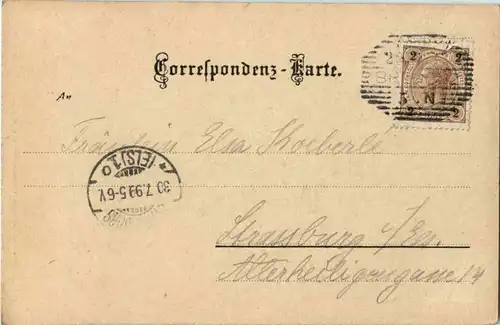 Correspondenz-Karte.
An
2 2
2 2
Fräulein Elsa Koeberle
(ELS) 1 c
30.7.99 5-6 V.
Strassburg i/Els.
Allerheiligengasse 14